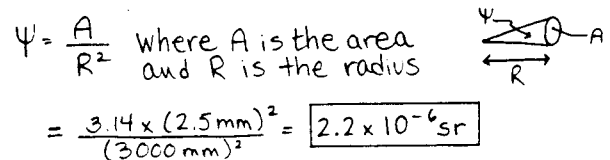 Ψ = A/R² where A is the area Ψ A
and R is the radius R
= 3.14 x (2.5mm)²/(3000 mm)² = 2.2 x 10⁻⁶ sr